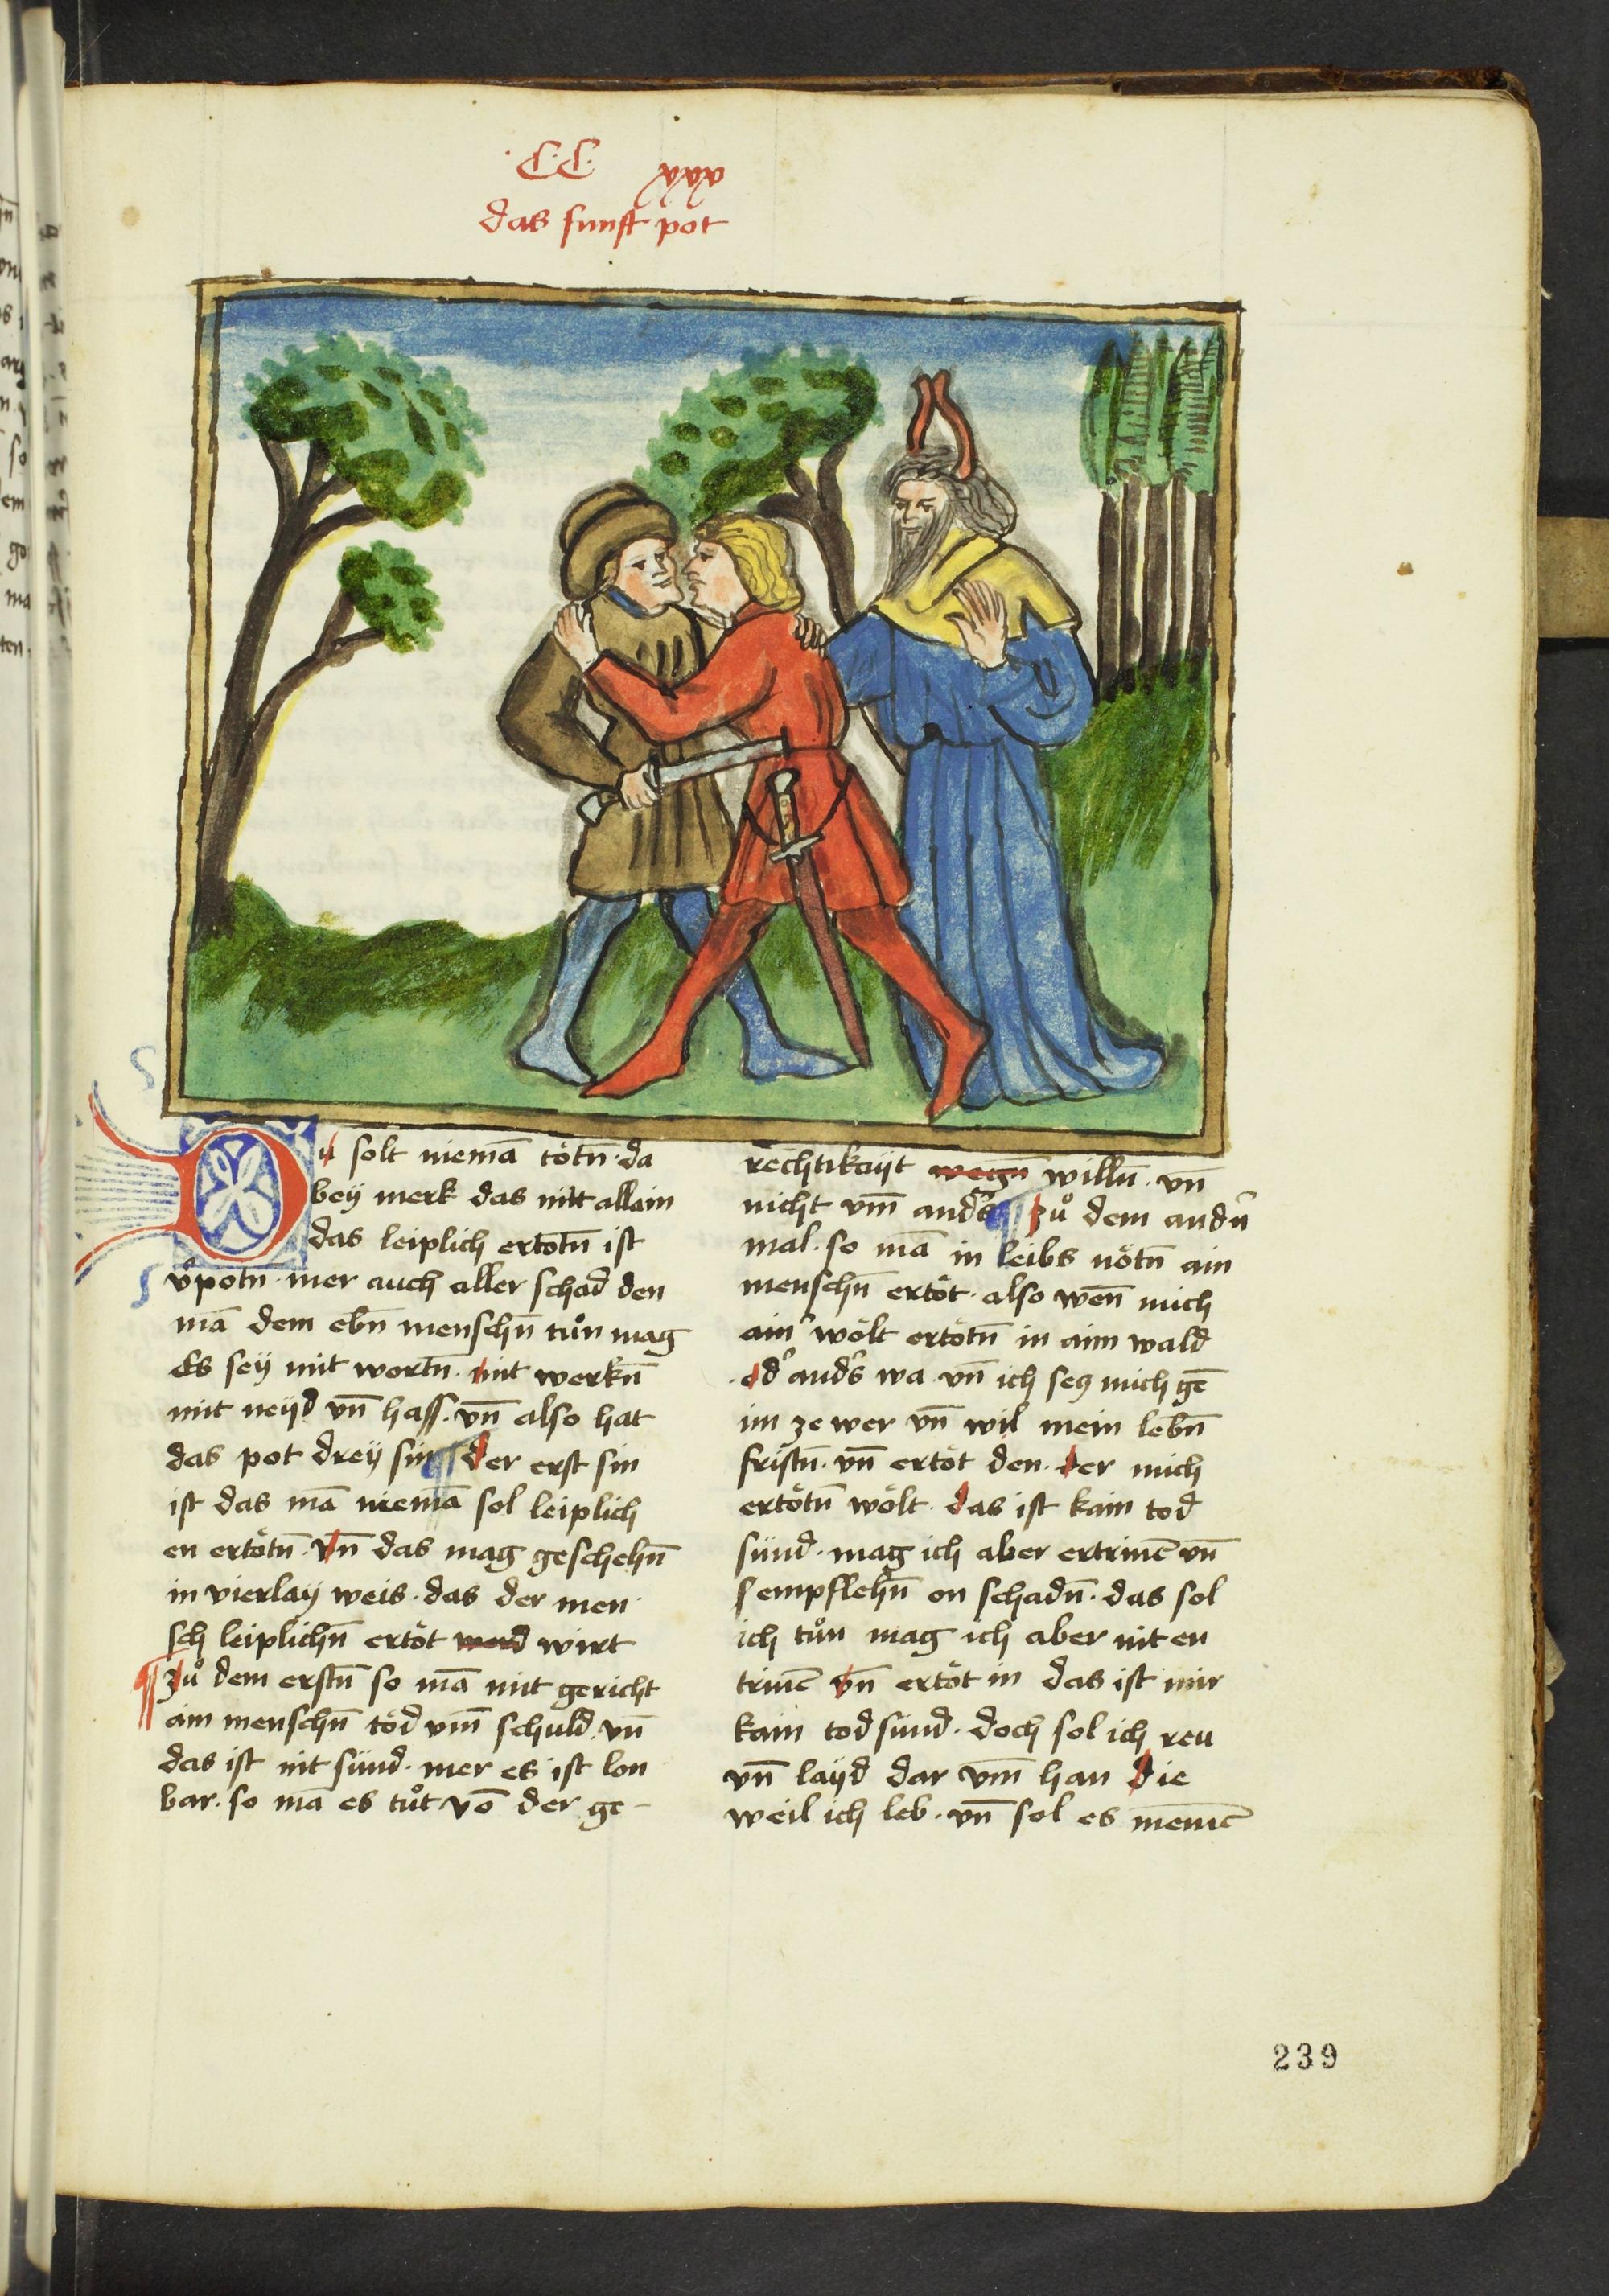 ·C·C· xxx
das funft pot
Du solt niemā tötn̄ · da
bey merk das nitt allain
das leiplich ertotn̄ ist
v̓potn · mer auch aller schad den
mā dem ebn̄ menschn̄ tůn mag
Es sey mit wortn̄ · mit werkn̄
mit neyd vn̄ hass · vn̄ also hat
das pot drey sin ¶ der erst sin
ist das mā niemā sol leiplich
en ertötn̄ · Vn̄ das mag geschehn̄
in vierlay weis · das der men
sch leiplichn̄ ertöt werd wirt
¶ zů dem erstn̄ so mā mit gericht
ain menschn̄ töd vm̄ schuld · vn̄
das ist nit sünd · mer es ist lon
bar · so mā es tůt vō der ge-
rechtikayt wegn willn̄ · vn̄
nicht vm̄ and̓s ¶ zů dem andn̓
mal · so mā in leibs nötn̄ ain
menschn̄ ertöt · also wen̄ mich
ain̓ wölt ertötn̄ in aim wald
· od̓ and̓s wa · vn̄ ich secz mich gē
im ze wer vn̄ wil mein lebn̄
fristn̄ · vn̄ ertöt den · der mich
ertötn̄ wölt · das ist kain tod
sünd · mag ich aber ertrinē vn̄
empflehn̄ on schadn̄ · das sol
ich tůn mag ich aber nit en
trinē vn̄ ertöt in das ist mir
kain tod sünd · doch sol ich reu
vn̄ layd dar vm̄ han die
weil ich leb · vn̄ sol es
239